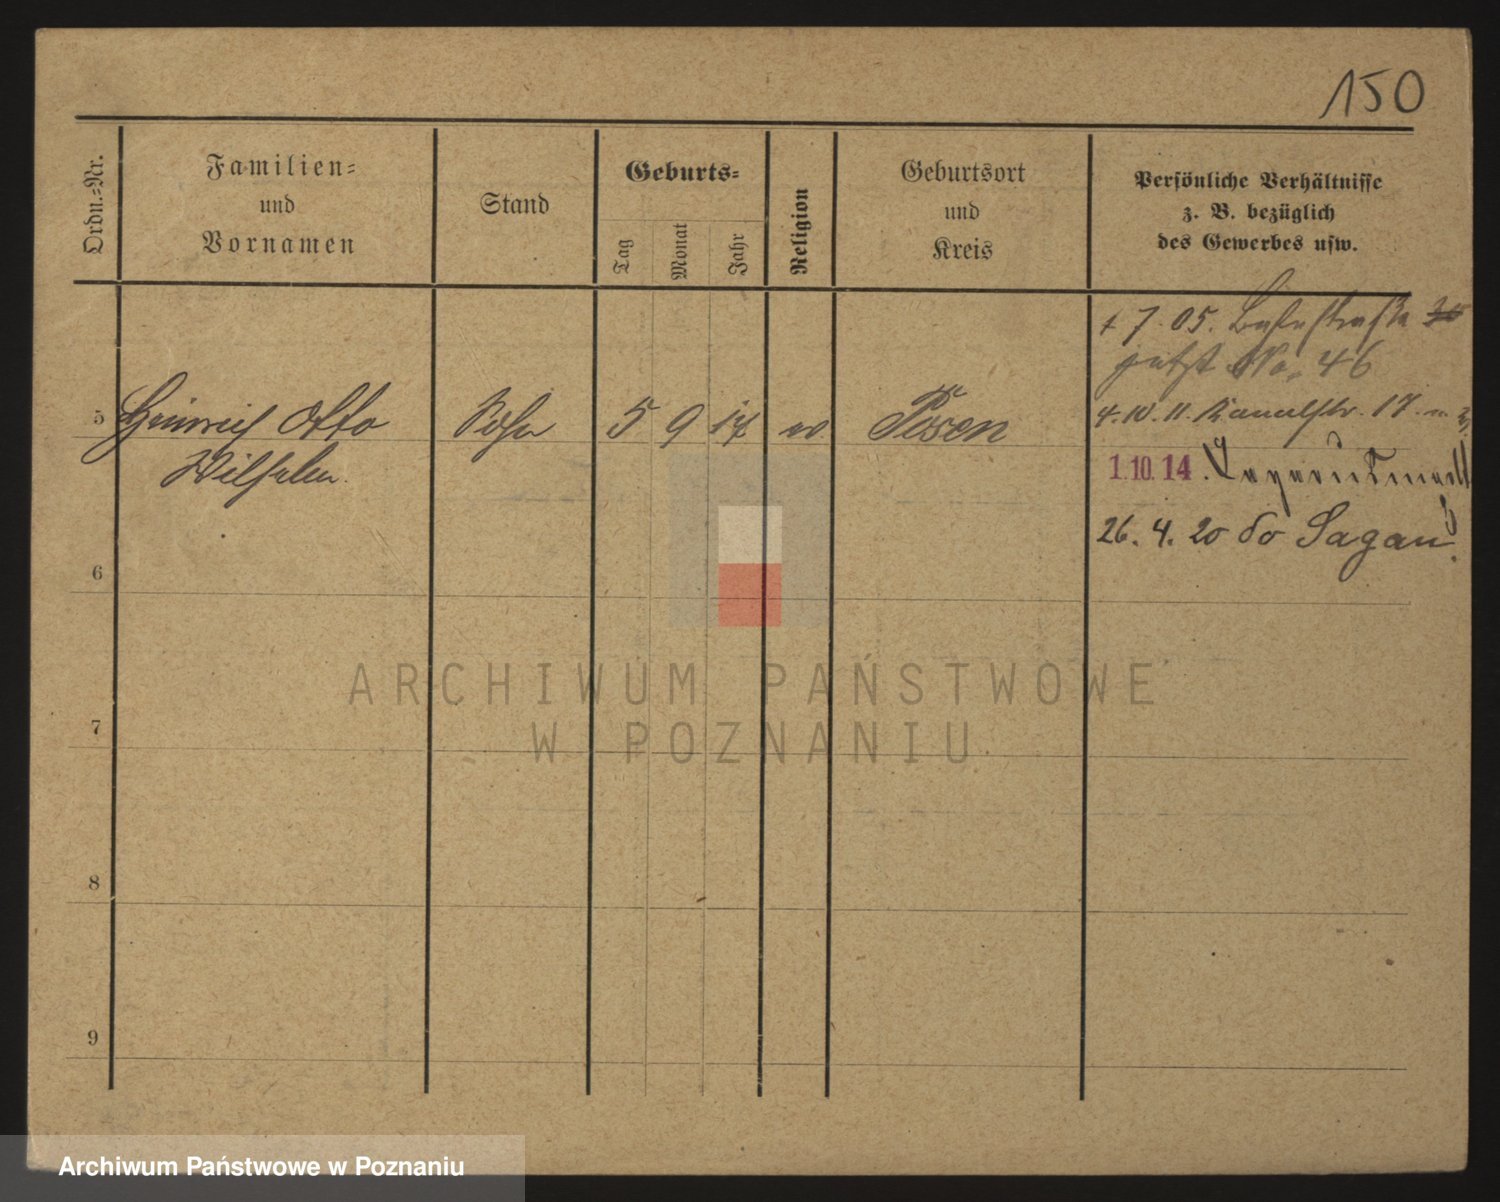 150
Ordn.-Nr.
Familien-
und
Vornamen
Stand
Geburts-
Tag
Monat
Jahr
Religion
Geburtsort
und
Kreis
Persönliche Verhältnisse
z. B. bezüglich
des Gewerbes usw.
7. 05.
jetzt No. 46
5 Heinrich Otto Sohn 5 9 Posen
4. 10. 11. Kanalstr. 17.
Wilhelm.
1.10.14
26. 4. 20 Sagan
6
7
8
9
ARCHIWUM PAŃSTWOWE
W POZNANIU
Archiwum Państwowe w Poznaniu